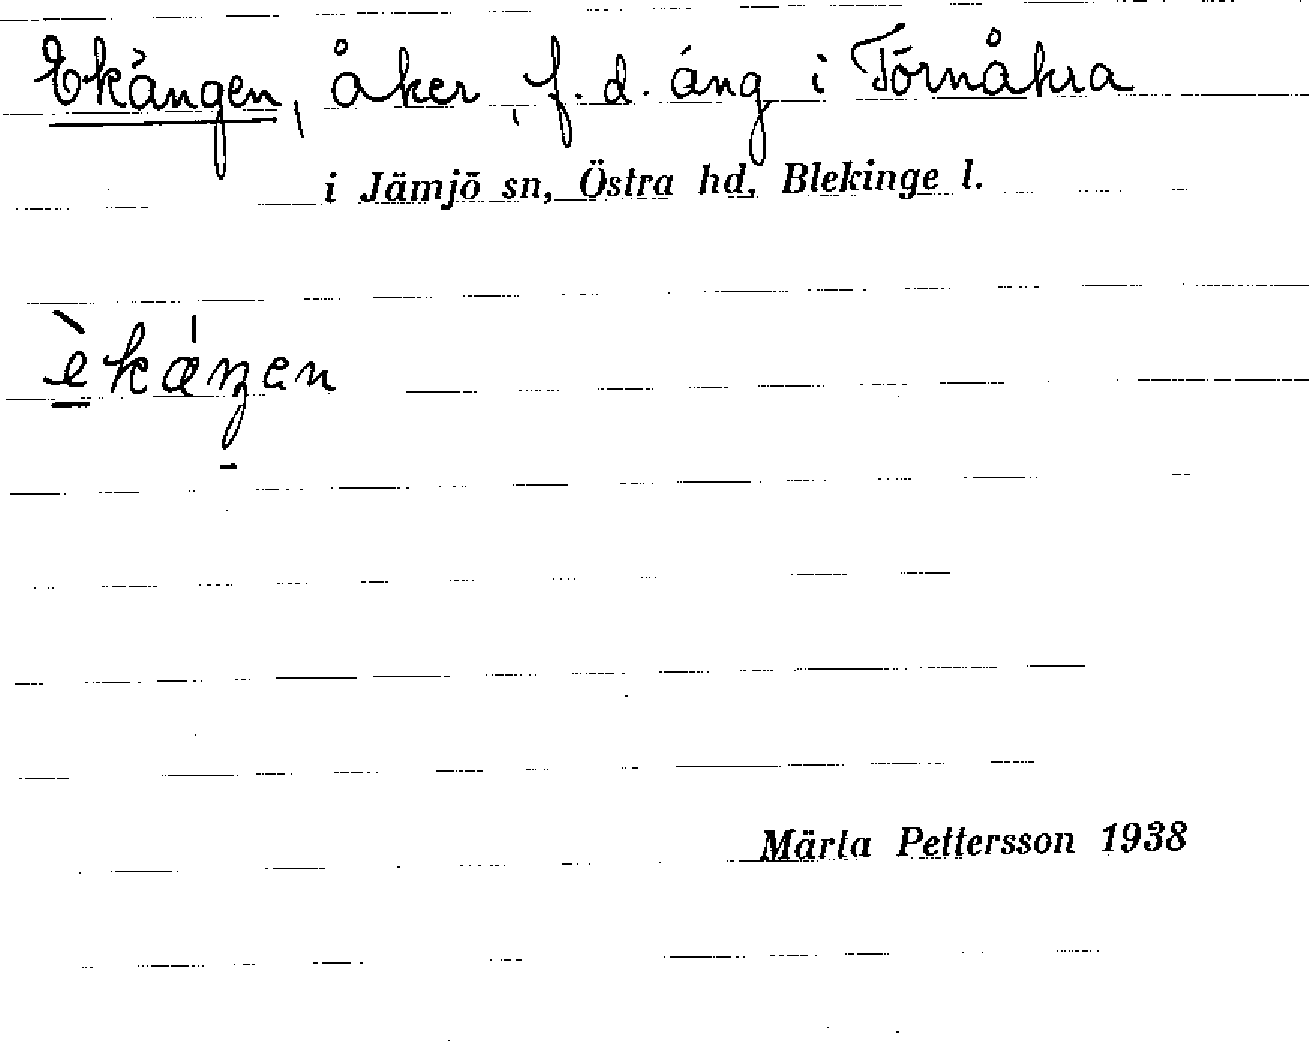 Ekängen, åker, f.d. äng i Törnåkra
i Jämjö sn, Östra hd, Blekinge l.
èkáŋen
Märta Pettersson 1938